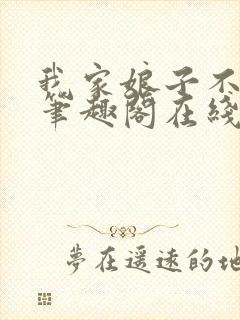 我家娘子不
筆趣閣在綫
夢在遥遠的地